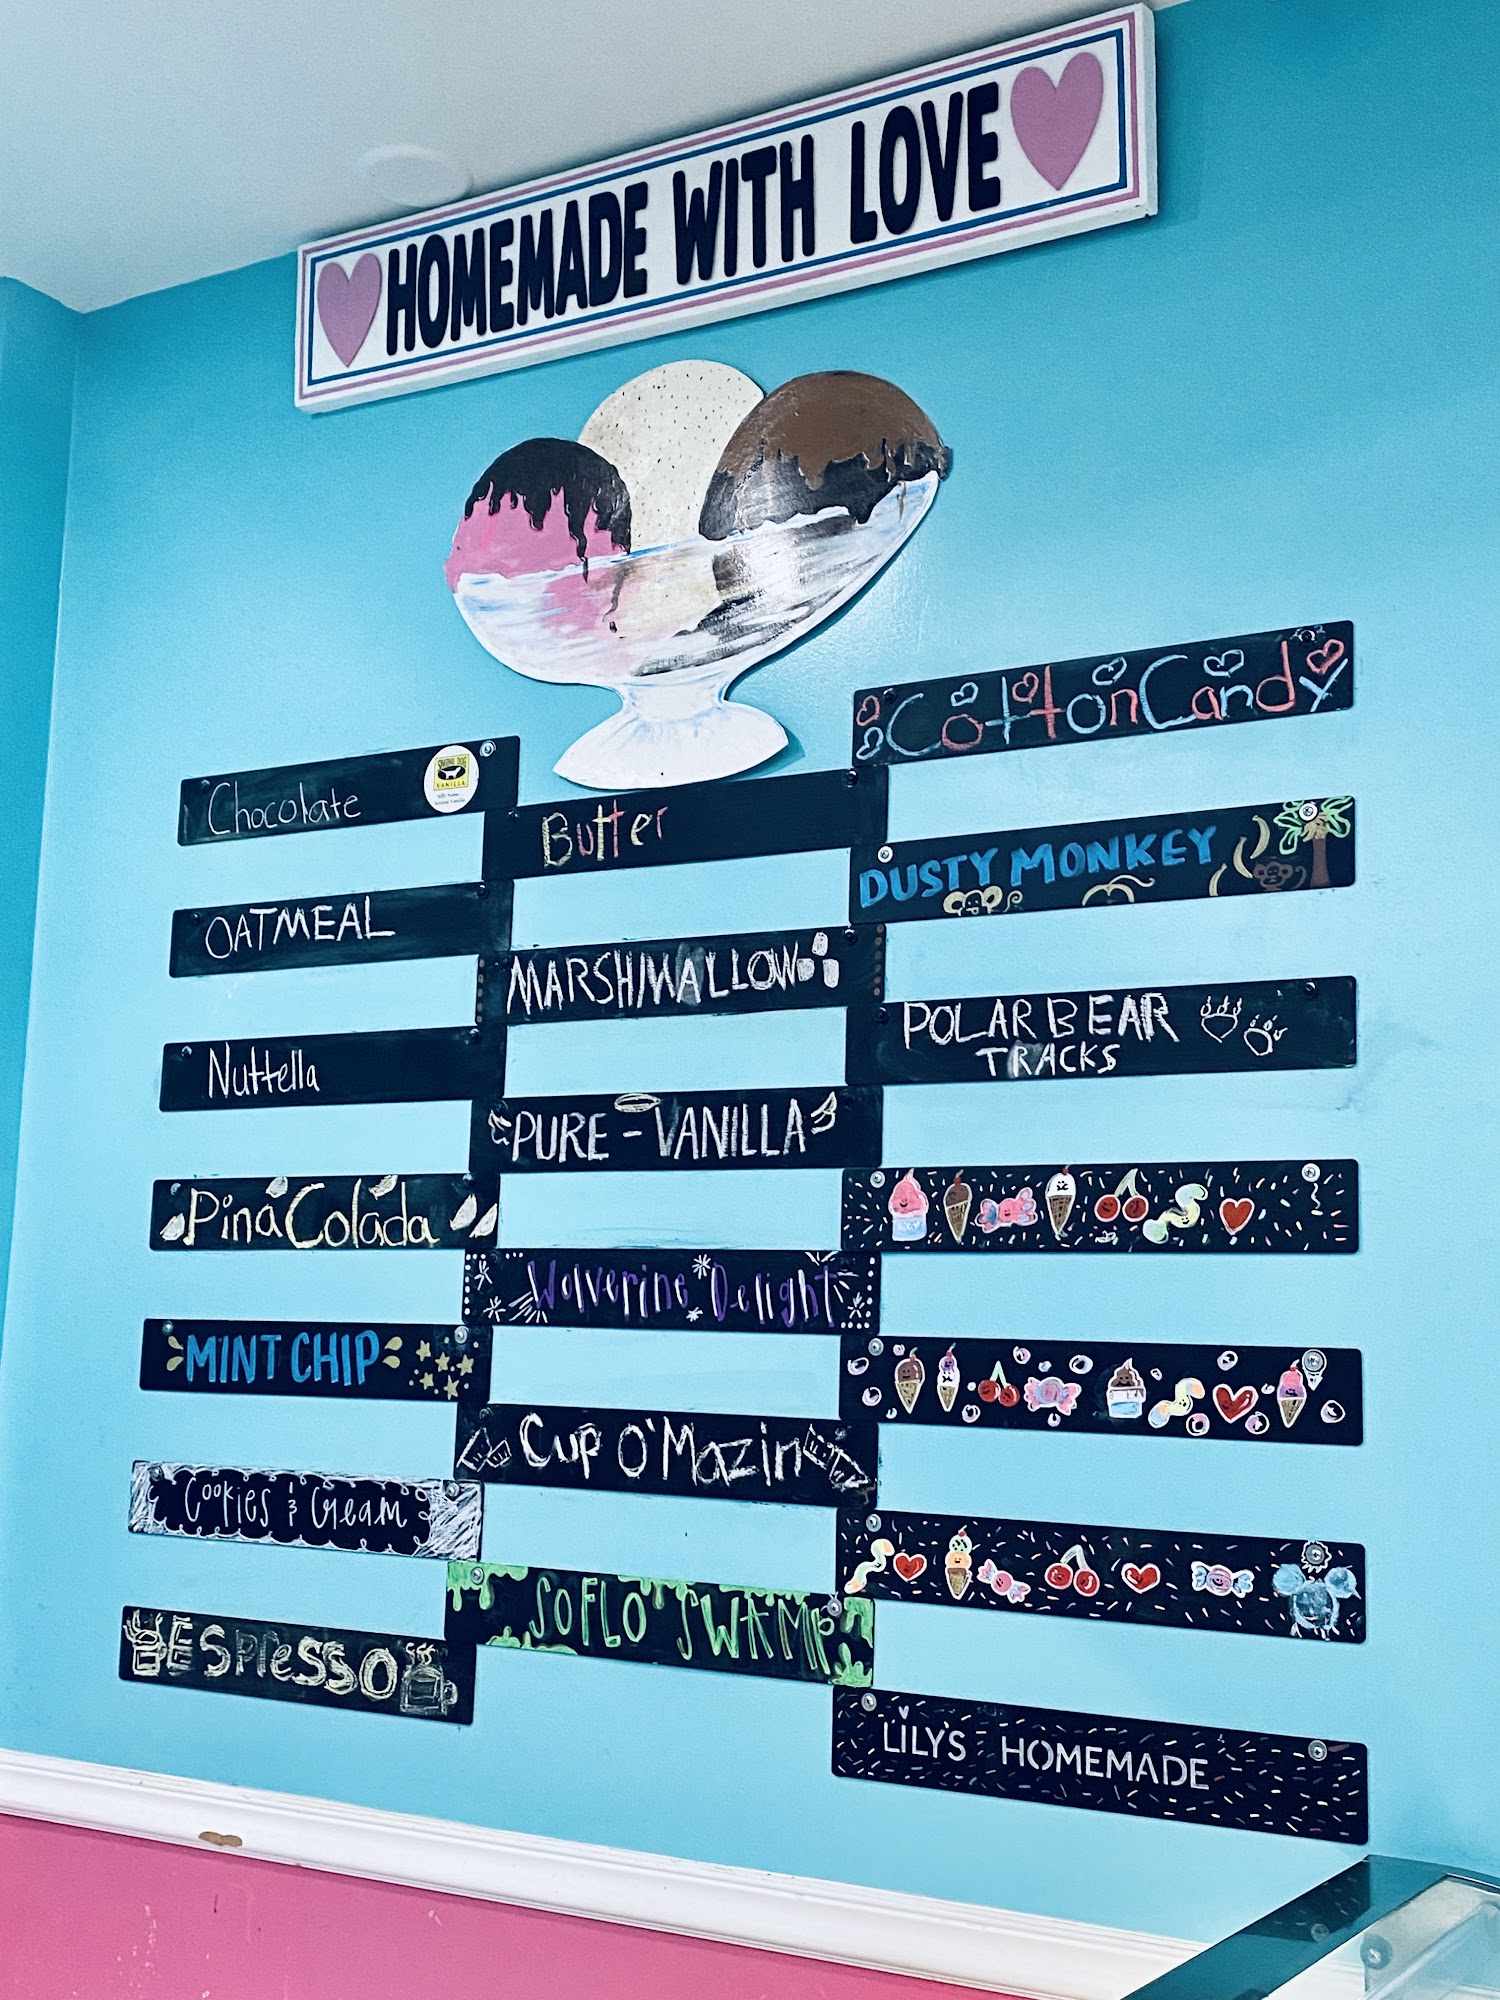 HOMEMADE WITH LOVE
Chocolate
SINGING DOG
VANILLA
OATMEAL
Nuttella
Pina Colada
MINT CHIP
Cookies & Cream
Espresso
Butter
MARSHMALLOW
PURE-VANILLA
Wolverine Delight
Cup O'Mazin
SOFLO SWAMP
Cotton Candy
DUSTY MONKEY
POLAR BEAR
TRACKS
LILY'S HOMEMADE